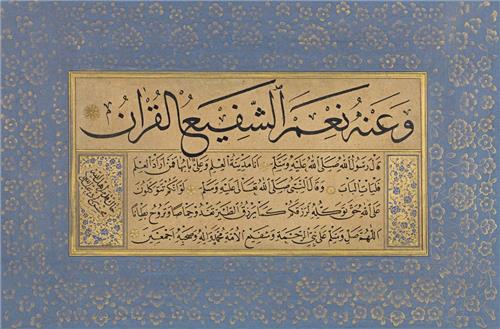 وعنه نعم الشفيع القرآن
قال رسول الله صلى الله عليه وسلم انا مدينة العلم وعلي بابها فمن اراد العلم
فليات الباب وقال النبي صلى الله تعالى عليه وسلم لو انكم تتوكلون
على الله حق توكله لرزقكم كما يرزق الطير تغدو خماصا وتروح بطانا
اللهم صل وسلم على نبي الرحمة وشفيع الامة محمد وآله وصحبه اجمعين